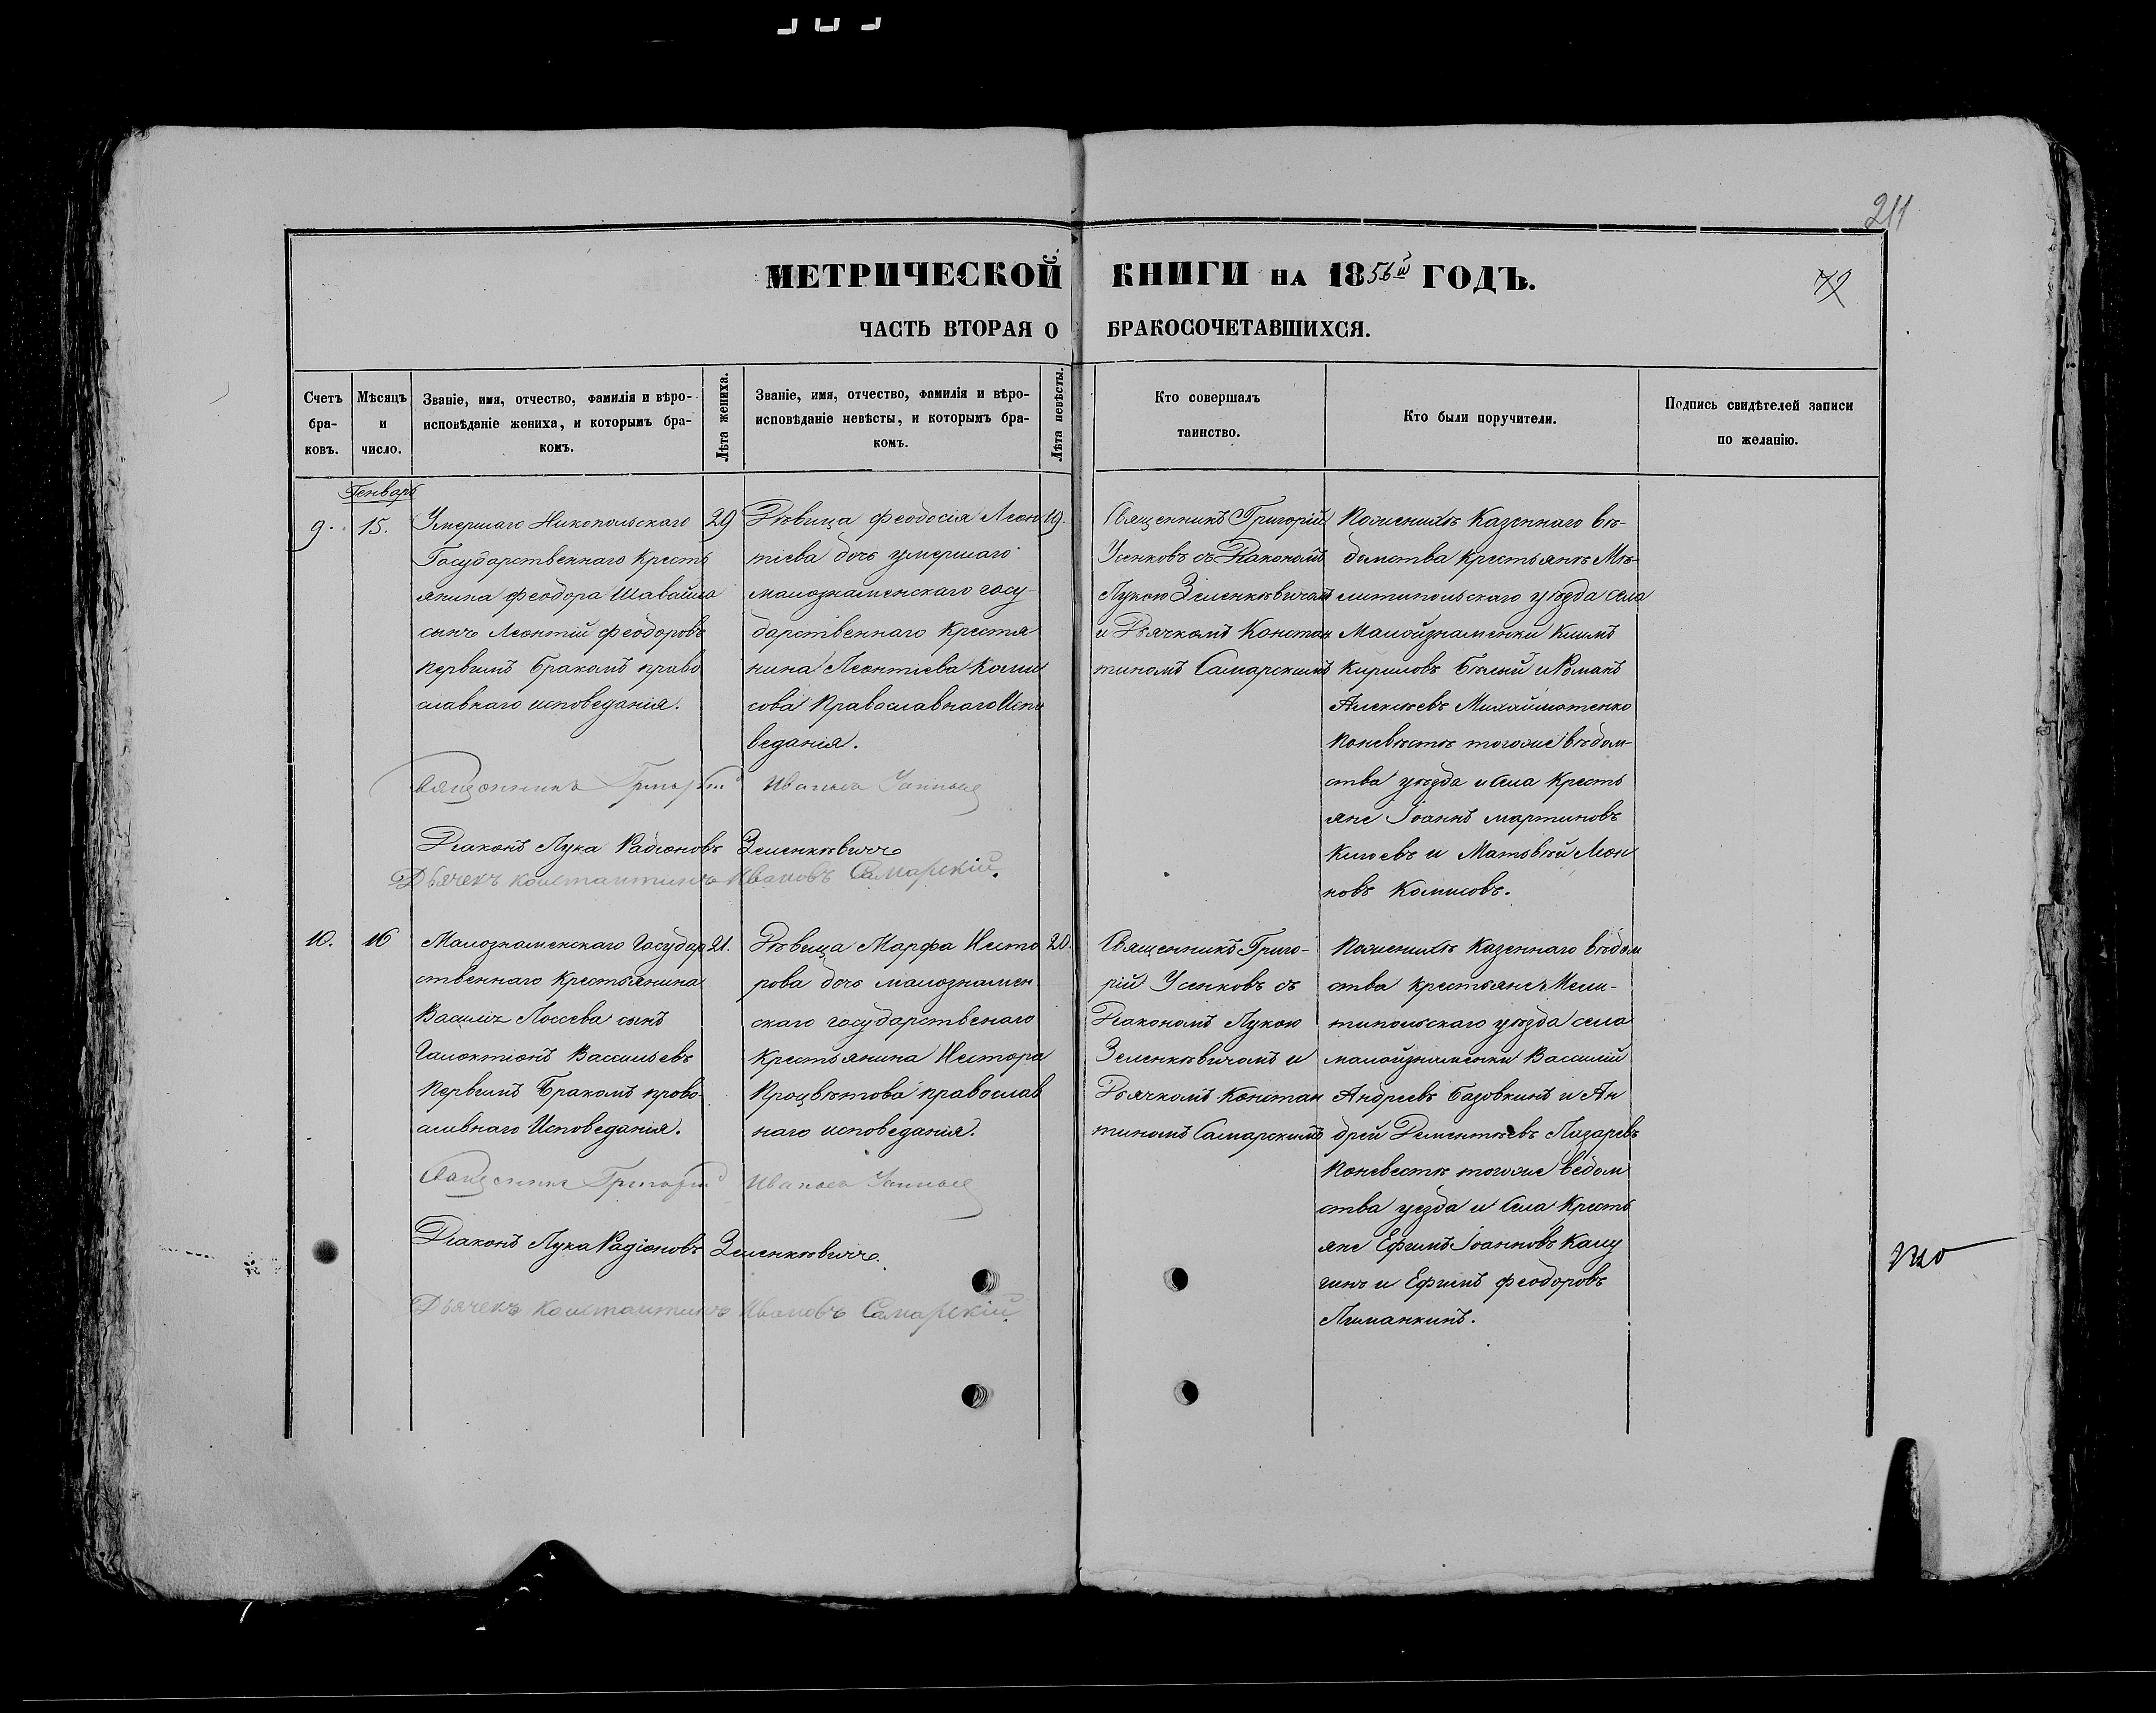 211
МЕТРИЧЕСКОЙ КНИГИ НА 1856й ГОДЪ.
72
ЧАСТЬ ВТОРАЯ О БРАКОСОЧЕТАВШИХСЯ.
Счетъ бра-
ковъ.
Мѣсяцъ
и
число.
Званіе, имя, отчество, фамилія и вѣро-
исповѣданіе жениха, и которымъ бра-
комъ.
Лѣта жениха.
Званіе, имя, отчество, фамилія и вѣро-
исповѣданіе невѣсты, и которымъ бра-
комъ.
Лѣта невѣсты.
Кто совершалъ
таинство.
Кто были поручители.
Подпись свидѣтелей записи
по желанію.
Генварь
9.
15.
Умершаго Никопольскаго
Государственнаго Кресть
янина Феодора
сынъ Леонтій Феодоровъ
первымъ бракомъ право
славнаго исповеданія.
29
Дѣвица Феодосія Леон
тіева дочь умершаго
малознаменскаго госу-
дарственнаго Крестя
нина Леонтіева
Православнаго Испо
веданія.
19.
Священникъ Григорій
Усенковъ съ Диакономъ
Лукою Зеленкѣвичемъ
и Дьячкомъ Констан
тиномъ Самарскимъ
Поженихѣ Казеннаго вѣ-
домства крестьяне Ме-
литипольскаго уѣзда села
Малойзнаменки Климъ
Кириловъ Бѣлый и Романъ
Алексѣевъ
Поневѣстѣ тогоже вѣдом-
ства уѣзда и села Кресть
яне Іоаннъ Мартиновъ
и Матвѣй Леон
новъ
Священникъ Григорій Ивановъ
Диаконъ Лука Радіоновъ Зеленкѣвичъ
Дьячекъ Константинъ Ивановъ Самарскій.
10.
16
Малознаменскаго Государ
ственнаго Крестьянина
Василія Лосева сынъ
Галактіонъ Васильевъ
Первымъ Бракомъ право
славнаго Исповеданія.
21.
Дѣвица Марфа Несто
рова дочь малознамен
скаго государственаго
Крестьянина Нестора
Процвѣтова православ
наго исповеданія.
20.
Священникъ Григо-
рій Усенковъ съ
Диакономъ Лукою
Зеленкѣвичемъ и
Дьячкомъ Констан
тиномъ Самарскимъ
Поженихѣ Казеннаго вѣдом
ства крестьяне Мели-
типольскаго уѣзда села
малойзнаменки Василій
Андреевъ Базовкинъ и Ан
дрей Дементьевъ Лазаревъ
Поневестѣ тогоже ведом
ства уезда и села Кресть
яне Ефимъ Іоанновъ Калу
гинъ и Ефимъ Феодоровъ
Лиманкинъ.
Священникъ Григорій Ивановъ
Диаконъ Лука Радіоновъ Зеленкѣвичъ.
Дьячекъ Константинъ Ивановъ Самарскій.